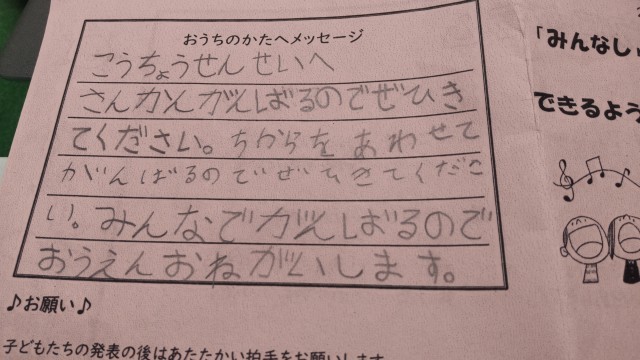 おうちのかたへメッセージ
こうちょうせんせいへ
さんかんがんばるのでぜひき
てください。ちからをあわせて
がんばるのでぜひきてくださ
い。みんなでがんばるので
おうえんおねがいします。
♪お願い♪
子どもたちの発表の後はあたたかい拍手をお願いします
「みんなし
できるよう